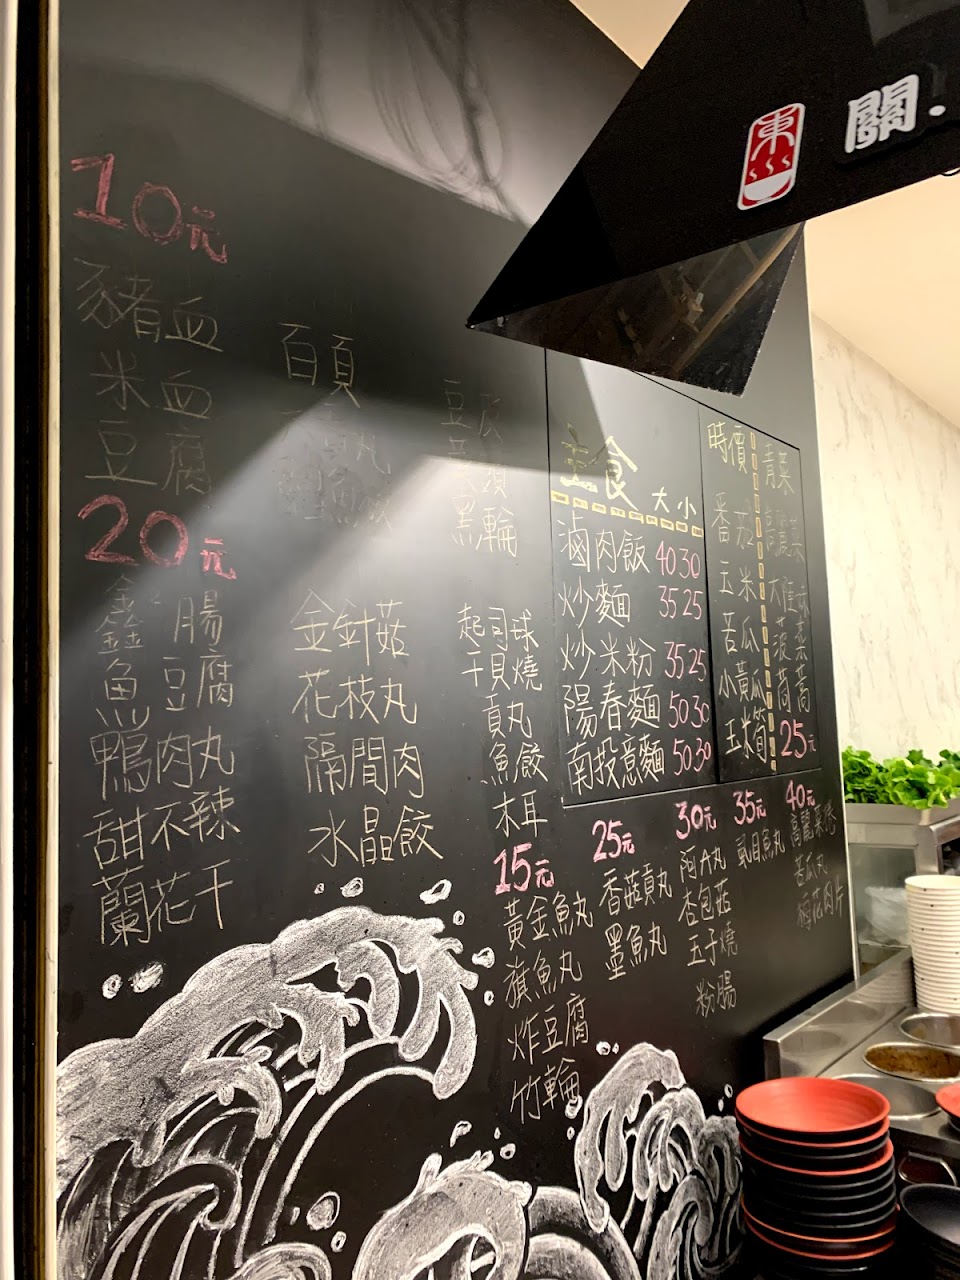 東
關.
10元
豬血
米血
豆腐
百頁
黑輪
20元
鑫腸
魚豆腐
鴨肉丸
甜不辣
蘭花干
金針菇
花枝丸
隔間肉
水晶餃
起司球
干貝燒
貢丸
魚餃
木耳
主食
大 小
滷肉飯 40 30
炒麵 35 25
炒米粉 35 25
陽春麵 50 30
南投意麵 50 30
時價
番茄
玉米
苦瓜
小黃瓜
玉米筍
青菜
高麗菜
茼蒿
25元
15元
黃金魚丸
旗魚丸
炸豆腐
竹輪
25元
香菇貢丸
墨魚丸
30元
阿A丸
杏包菇
玉子燒
粉腸
35元
虱目魚丸
40元
高麗菜捲
苦瓜丸
梅花肉片